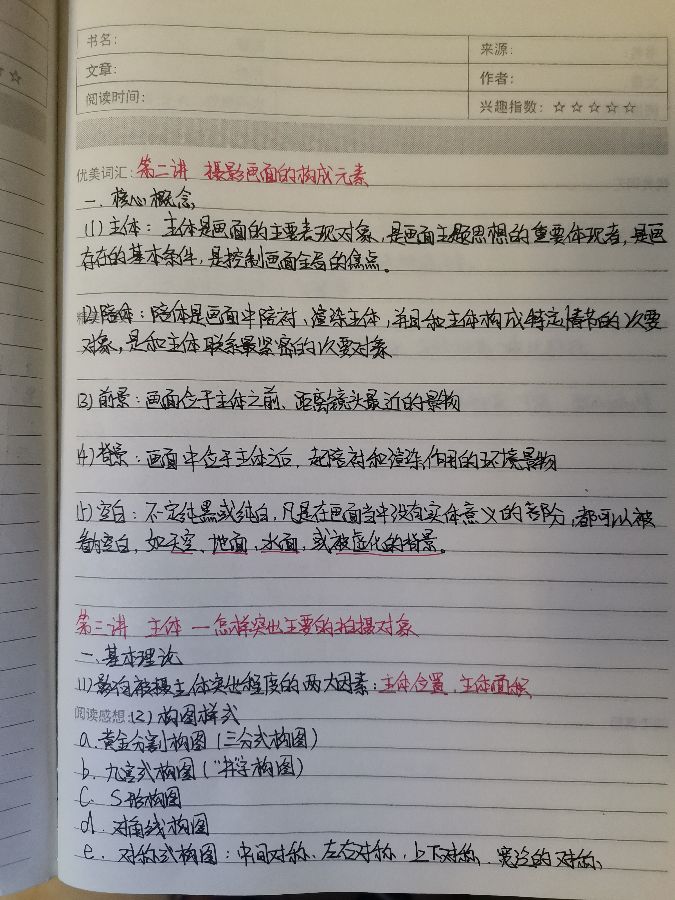 书名：
来源：
文章：
作者：
阅读时间：
兴趣指数：☆☆☆☆☆
优美词汇：第二讲 摄影画面的构成元素
一、核心概念
(1)主体：主体是画面的主要表现对象，是画面主题思想的重要体现者，是画
存在的基本条件，是控制画面全局的焦点。
(2)陪体：陪体是画面中陪衬、渲染主体，并且和主体构成特定情节的次要
对象，是和主体联系最紧密的次要对象
(3)前景：画面位于主体之前、距离镜头最近的景物
(4)背景：画面中位于主体之后，起陪衬和渲染作用的环境景物
(5)空白：不定纯黑或纯白，凡是在画面当中没有实体意义的部分，都可以被
看为空白，如天空、地面、水面，或被虚化的背景。
第三讲 主体 — 怎样突出主要的拍摄对象
一、基本理论
(1)影响被摄主体突出程度的两大因素：主体位置、主体面积
阅读感想：(2)构图样式
a.黄金分割构图（三分式构图）
b. 九宫式构图（"井"字构图）
C. S形构图
d. 对角线构图
e. 对称式构图：中间对称、左右对称、上下对称、宽泛的对称、